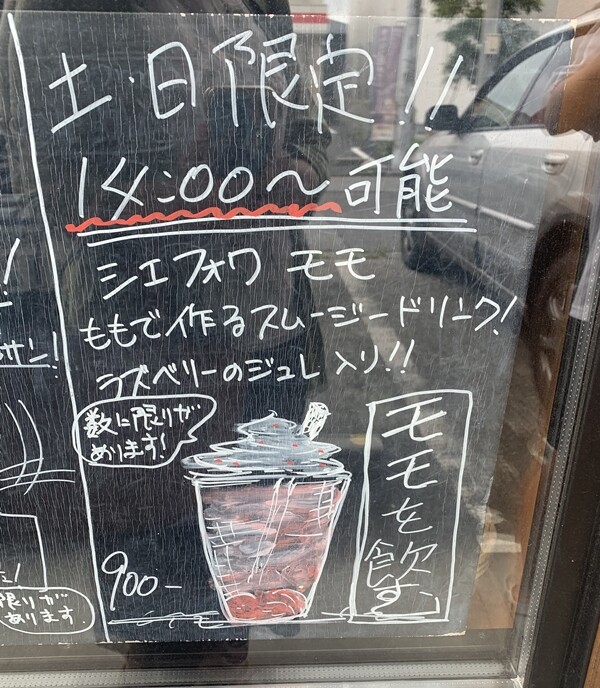 土・日限定!!
14:00〜可能
シェフォワ モモ
ももで作るスムージードリンク!
ラズベリーのジュレ入り!!
数に限りが
あります!
モモを飲む
900-
サン!
限りが
あります